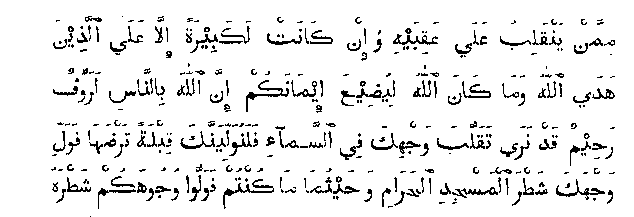 مِمَّنْ يَنْقَلِبُ عَلَي عَقِبَيْهِ وَإِنْ كَانَتْ لَكَبِيْرَةً إِلَّا عَلَي ٱلَّذِيْنَ
هَدَي ٱللهُ وَمَا كَانَ ٱللهُ لِيُضِيْعَ إِيْمَانَكُمْ إِنَّ ٱللهَ بِالنَّاسِ لَرَوُفٌ
رَحِيْمٌ قَدْ نَرَي تَقَلُّبَ وَجْهِكَ فِي ٱلسَّمآءِ فَلَنُوَلِّيَنَّكَ قِبْلَةً تَرْضَهَا فَوَلِّ
وَجْهَكَ شَطْرَ ٱلْمَسْجِدِ ٱلْحَرَامِ وَحَيْثُمَا مَا كُنْتُمْ فَوَلُّوا وُجُوهَكُمْ شَطْرَهُ